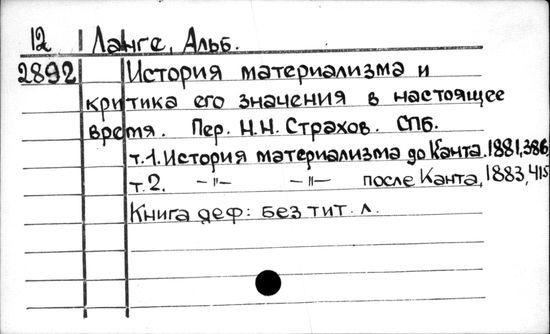 12 Ланге, Альб.
2892 История материализма и
критика его значения в настоящее
время. Пер. Н.Н. Страхов. СПб.
т.1. История материализма до Канта. 1881, 386
т.2. –"– –"– после Канта, 1883, 415
Книга деф: без тит. л.